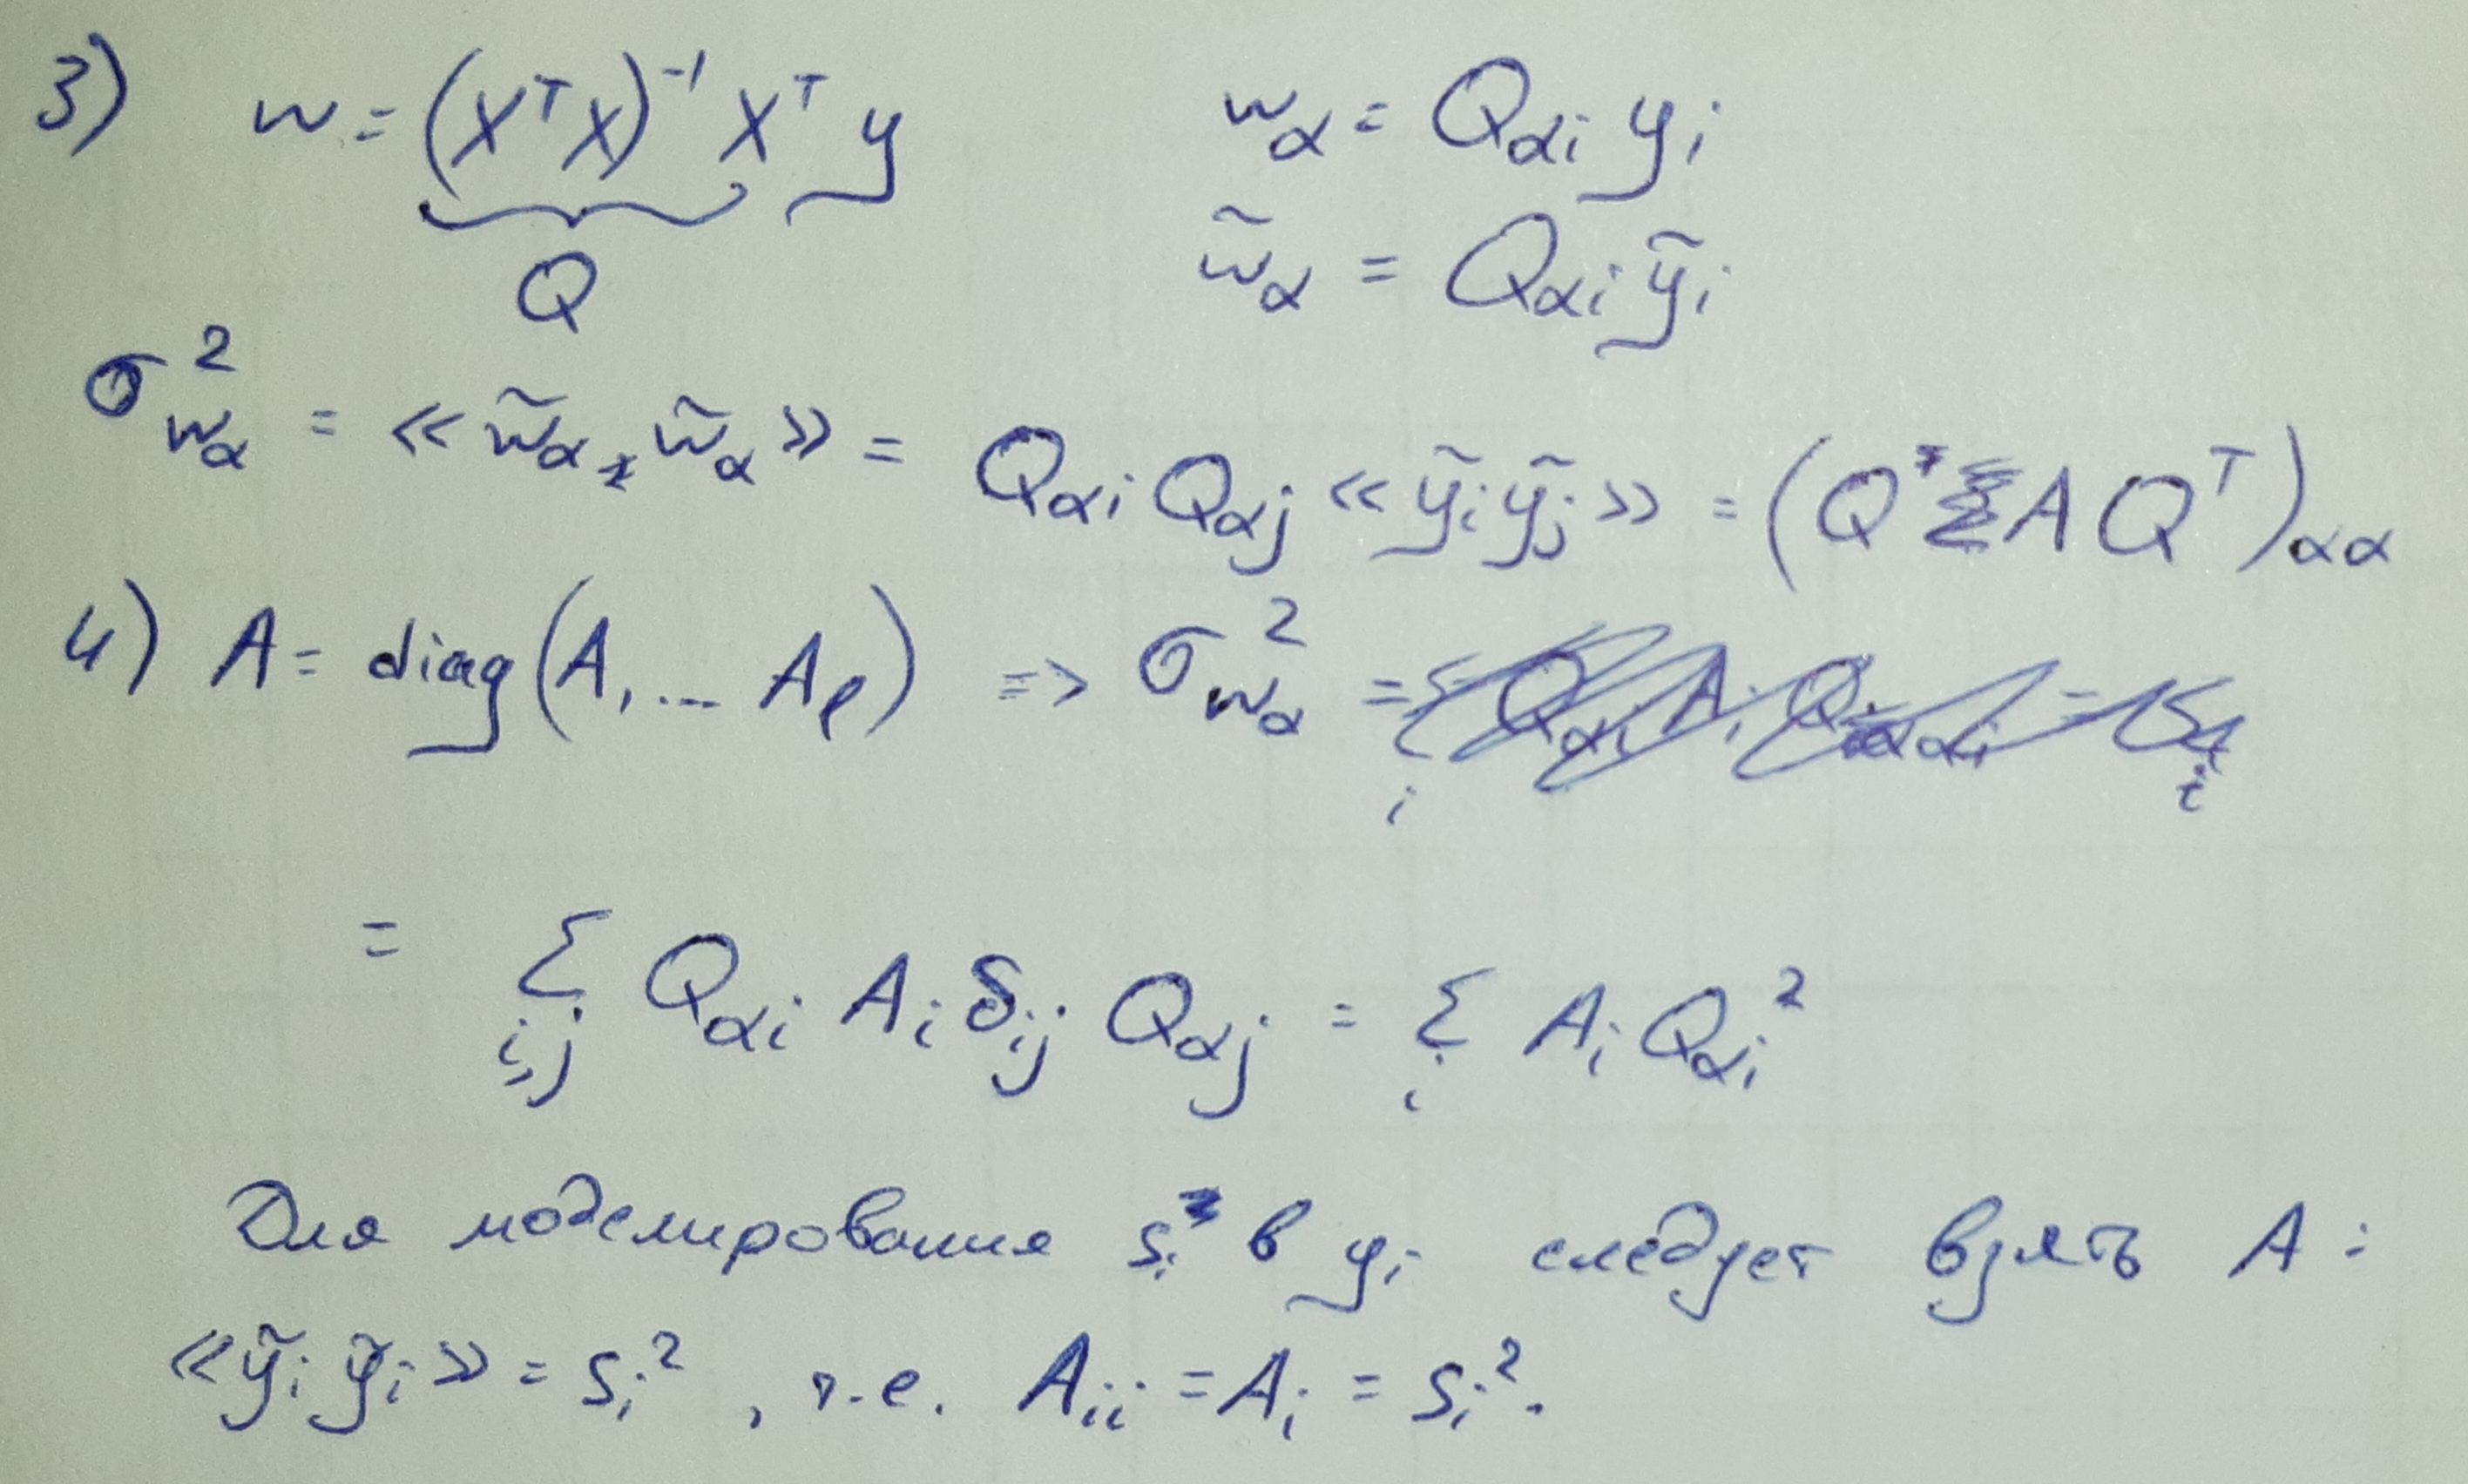 3) w = (XᵀX)⁻¹ Xᵀ y   w_α = Q_αi y_i
Q   w̃_α = Q_αi ỹ_i
σ²_wα = << w̃_α, w̃_α >> = Q_αi Q_αj << ỹ_i ỹ_j >> = (Q A Qᵀ)_αα
4) A = diag(A₁ ... A_ℓ) => σ²_wα =
= Σ_i,j Q_αi A_i δ_ij Q_αj = Σ_i A_i Q_αi²
Для моделирования s_i в y_i следует взять A :
<< ỹ_i ỹ_i >> = s_i² , т.е. A_ii = A_i = s_i².